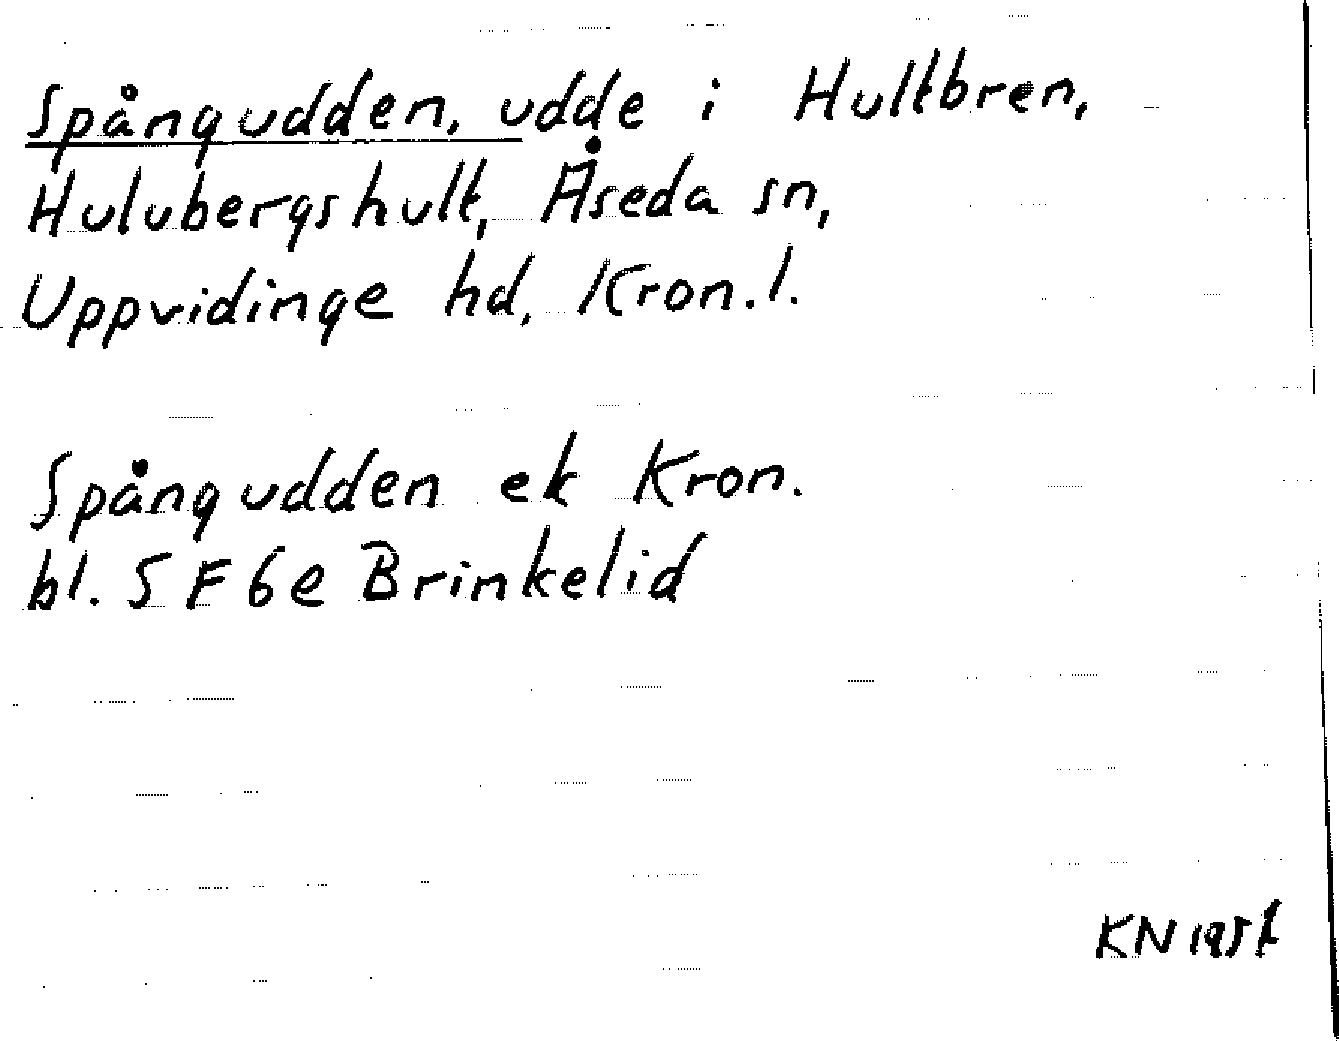 Spångudden, udde i Hultbren,
Hulubergshult, Åseda sn,
Uppvidinge hd, Kron.l.
Spångudden ek Kron.
bl. 5 F 6e Brinkelid
KN